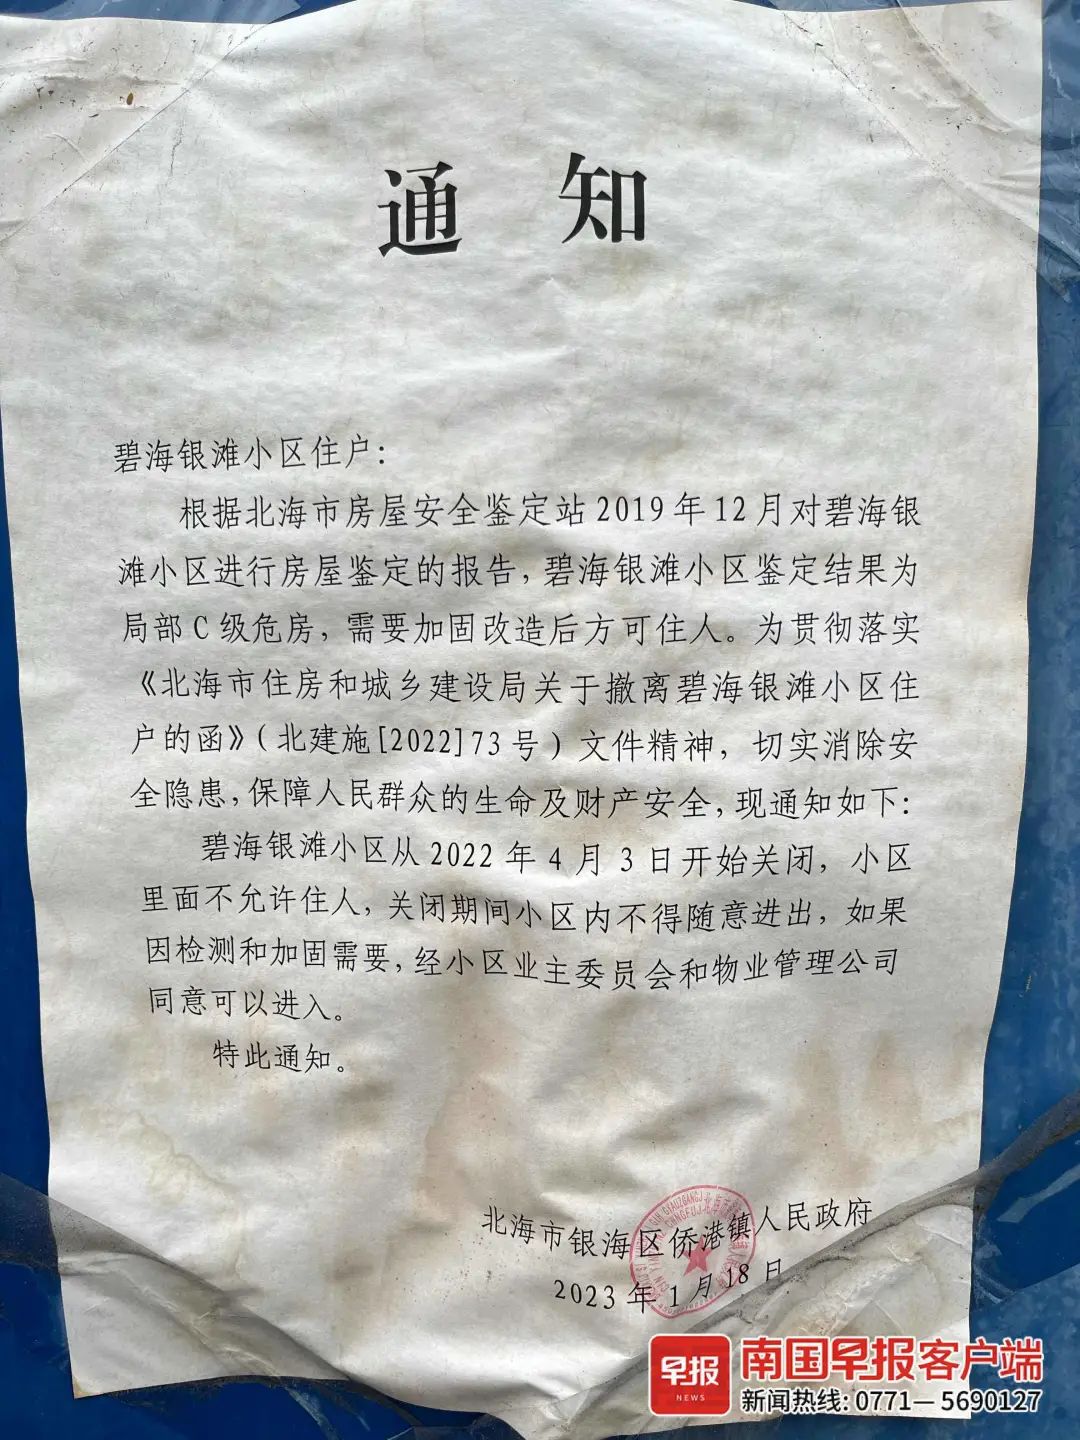 通知
碧海银滩小区住户：
根据北海市房屋安全鉴定站2019年12月对碧海银
滩小区进行房屋鉴定的报告，碧海银滩小区鉴定结果为
局部C级危房，需要加固改造后方可住人。为贯彻落实
《北海市住房和城乡建设局关于撤离碧海银滩小区住
户的函》（北建施[2022]73号）文件精神，切实消除安
全隐患，保障人民群众的生命及财产安全，现通知如下：
碧海银滩小区从2022年4月3日开始关闭，小区
里面不允许住人，关闭期间小区内不得随意进出，如果
因检测和加固需要，经小区业主委员会和物业管理公司
同意可以进入。
特此通知。
北海市银海区侨港镇人民政府
2023年1月18日
早报
NEWS
南国早报客户端
新闻热线：0771—5690127